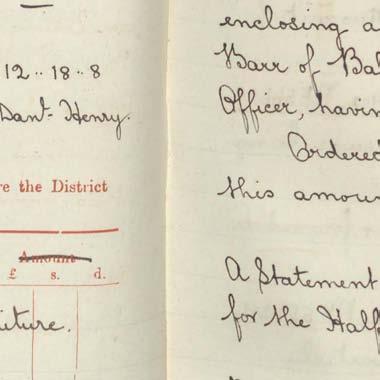 12 .. 18 .. 8
Danl. Henry.
re the District
Amount
£ s. d.
iture.
enclosing a
Barr of Bal
Officer, havin
Ordered
this amoun
A Statement
for the Half